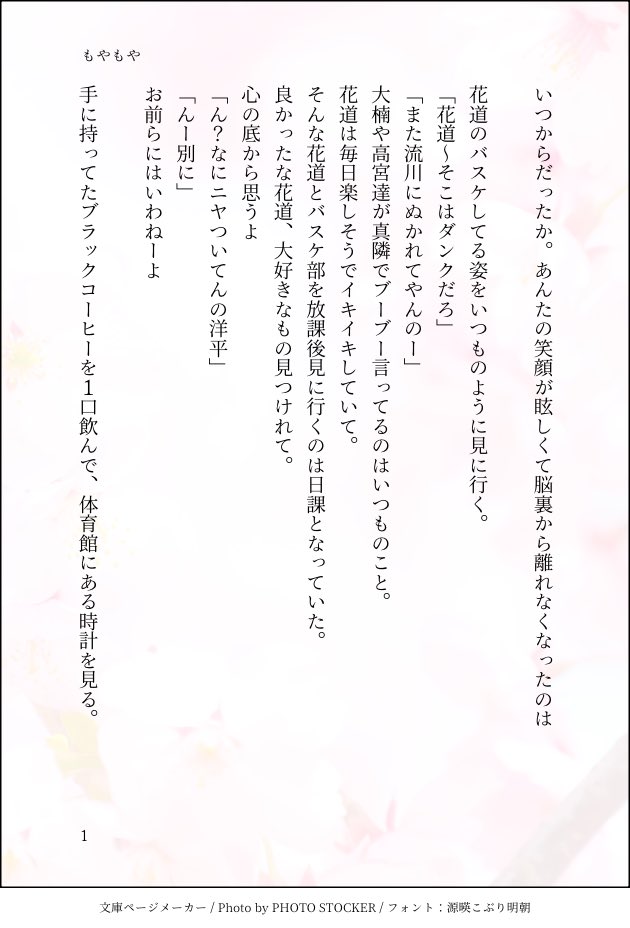 もやもや
いつからだったか。あんたの笑顔が眩しくて脳裏から離れなくなったのは
花道のバスケしてる姿をいつものように見に行く。
「花道～そこはダンクだろ」
「また流川にぬかれてやんのー」
大楠や高宮達が真隣でブーブー言ってるのはいつものこと。
花道は毎日楽しそうでイキイキしていて。
そんな花道とバスケ部を放課後見に行くのは日課となっていた。
良かったな花道、大好きなもの見つけれて。
心の底から思うよ
「ん？なにニヤついてんの洋平」
「んー別に」
お前らにはいわねーよ
手に持ってたブラックコーヒーを１口飲んで、体育館にある時計を見る。
1
文庫ページメーカー / Photo by PHOTO STOCKER / フォント：源暎こぶり明朝